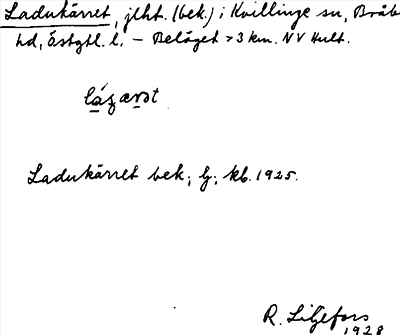 Ladukärret, jlht. (bek.) i Kvillinge sn, Bråb
hd, Östgtl. l. – Beläget >3 km. NV Hult.
Ladukärret bek; lj; kb. 1925.
R. Liljefors
1928